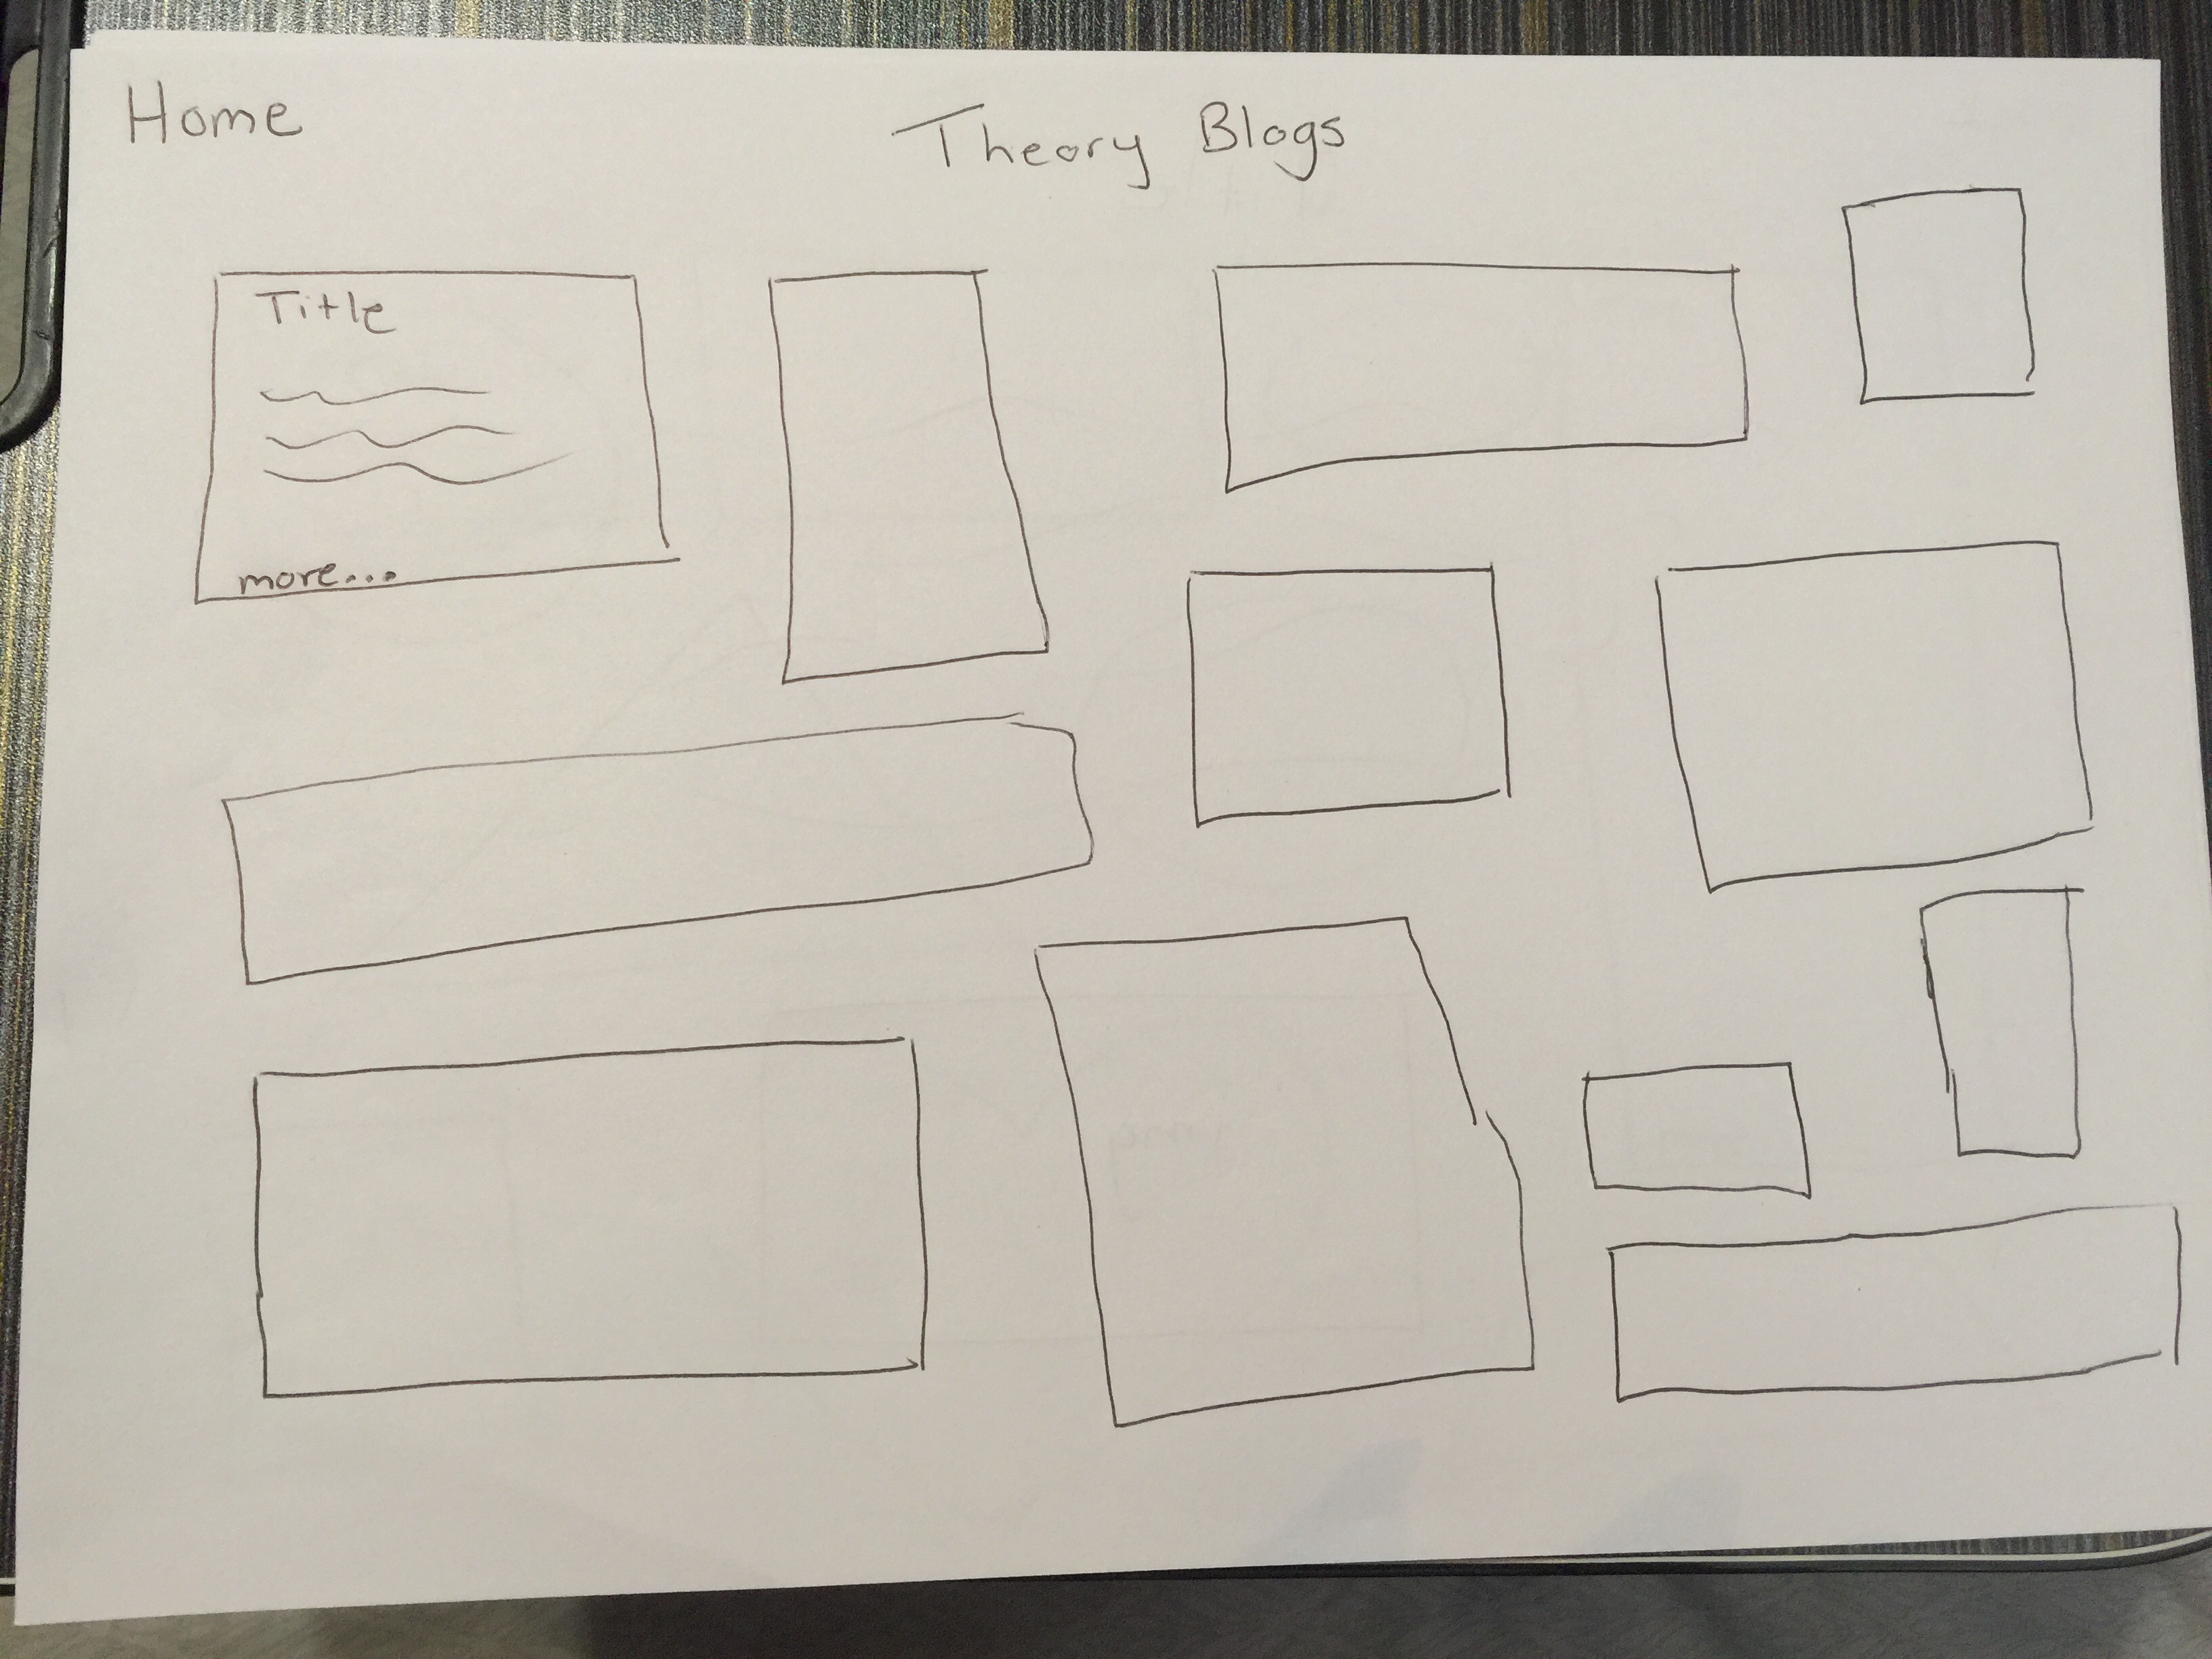 Home
Theory Blogs
Title
more...